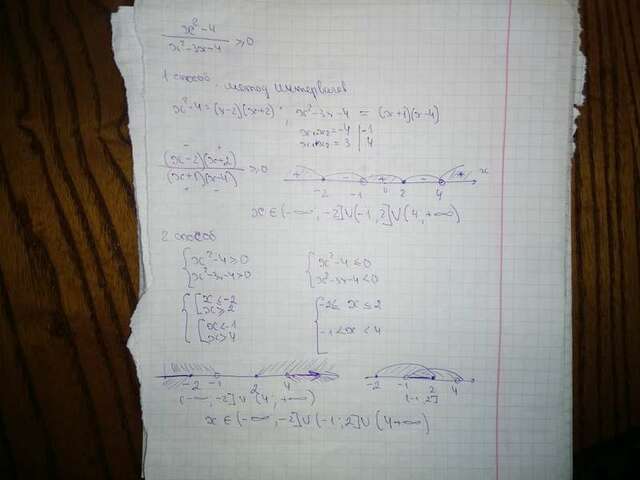 x²-4 / x²-3x-4 ≥ 0
1 способ метод интервалов
x²-4 = (x-2)(x+2) ; x²-3x-4 = (x+1)(x-4)
x₁·x₂ = -4 | -1
x₁+x₂ = 3 | 4
(x-2)(x+2) / (x+1)(x-4) ≥ 0
+ -2 - -1 + 2 - 4 + x
x ∈ (-∞, -2] ∪ (-1, 2] ∪ (4, +∞)
2 способ
{ x²-4 ≥ 0 { x²-4 ≤ 0
x²-3x-4 > 0 x²-3x-4 < 0
{ [ x ≤ -2 { -2 ≤ x ≤ 2
x ≥ 2
[ x < -1 -1 < x < 4
x > 4
-2 -1 2 4 -2 -1 2 4
(-∞, -2] ∪ (4, +∞) (-1, 2]
x ∈ (-∞, -2] ∪ (-1, 2] ∪ (4, +∞)